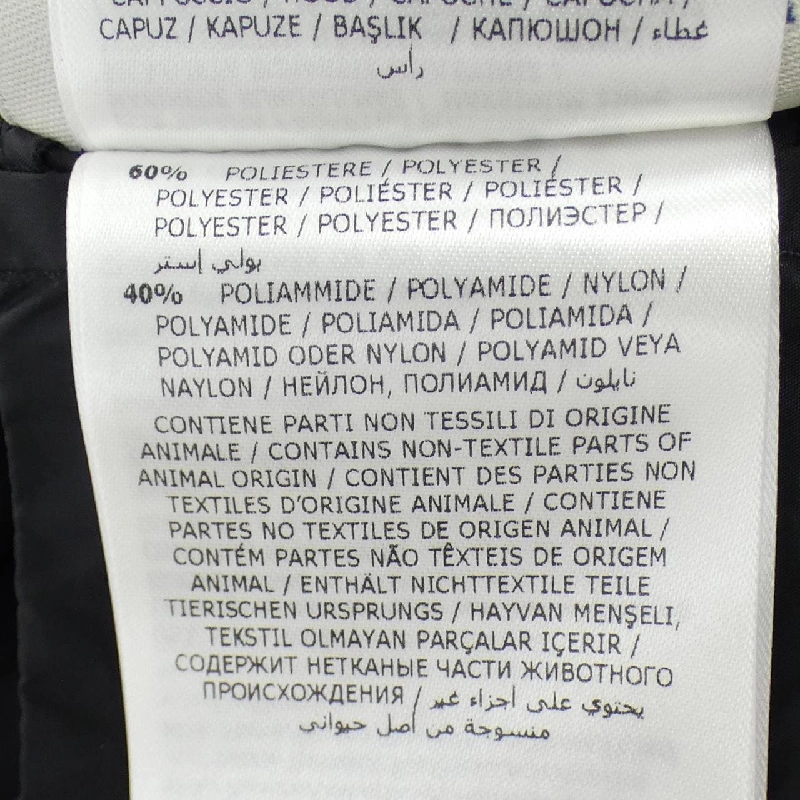 CAPPUCCIO / HOOD / CAPUCHE / CAPUCHA /
CAPUZ / KAPUZE / BAŞLIK / КАПЮШОН / غطاء
رأس
60% POLIESTERE / POLYESTER /
POLYESTER / POLIÉSTER / POLIÉSTER /
POLYESTER / POLYESTER / ПОЛИЭСТЕР /
بولي إستر
40% POLIAMMIDE / POLYAMIDE / NYLON /
POLYAMIDE / POLIAMIDA / POLIAMIDA /
POLYAMID ODER NYLON / POLYAMID VEYA
NAYLON / НЕЙЛОН, ПОЛИАМИД / نايلون
CONTIENE PARTI NON TESSILI DI ORIGINE
ANIMALE / CONTAINS NON-TEXTILE PARTS OF
ANIMAL ORIGIN / CONTIENT DES PARTIES NON
TEXTILES D'ORIGINE ANIMALE / CONTIENE
PARTES NO TEXTILES DE ORIGEN ANIMAL /
CONTÉM PARTES NÃO TÊXTEIS DE ORIGEM
ANIMAL / ENTHÄLT NICHTTEXTILE TEILE
TIERISCHEN URSPRUNGS / HAYVAN MENŞELİ,
TEKSTIL OLMAYAN PARÇALAR IÇERIR /
СОДЕРЖИТ НЕТКАНЫЕ ЧАСТИ ЖИВОТНОГО
ПРОИСХОЖДЕНИЯ / يحتوي على أجزاء غير
منسوجة من أصل حيواني